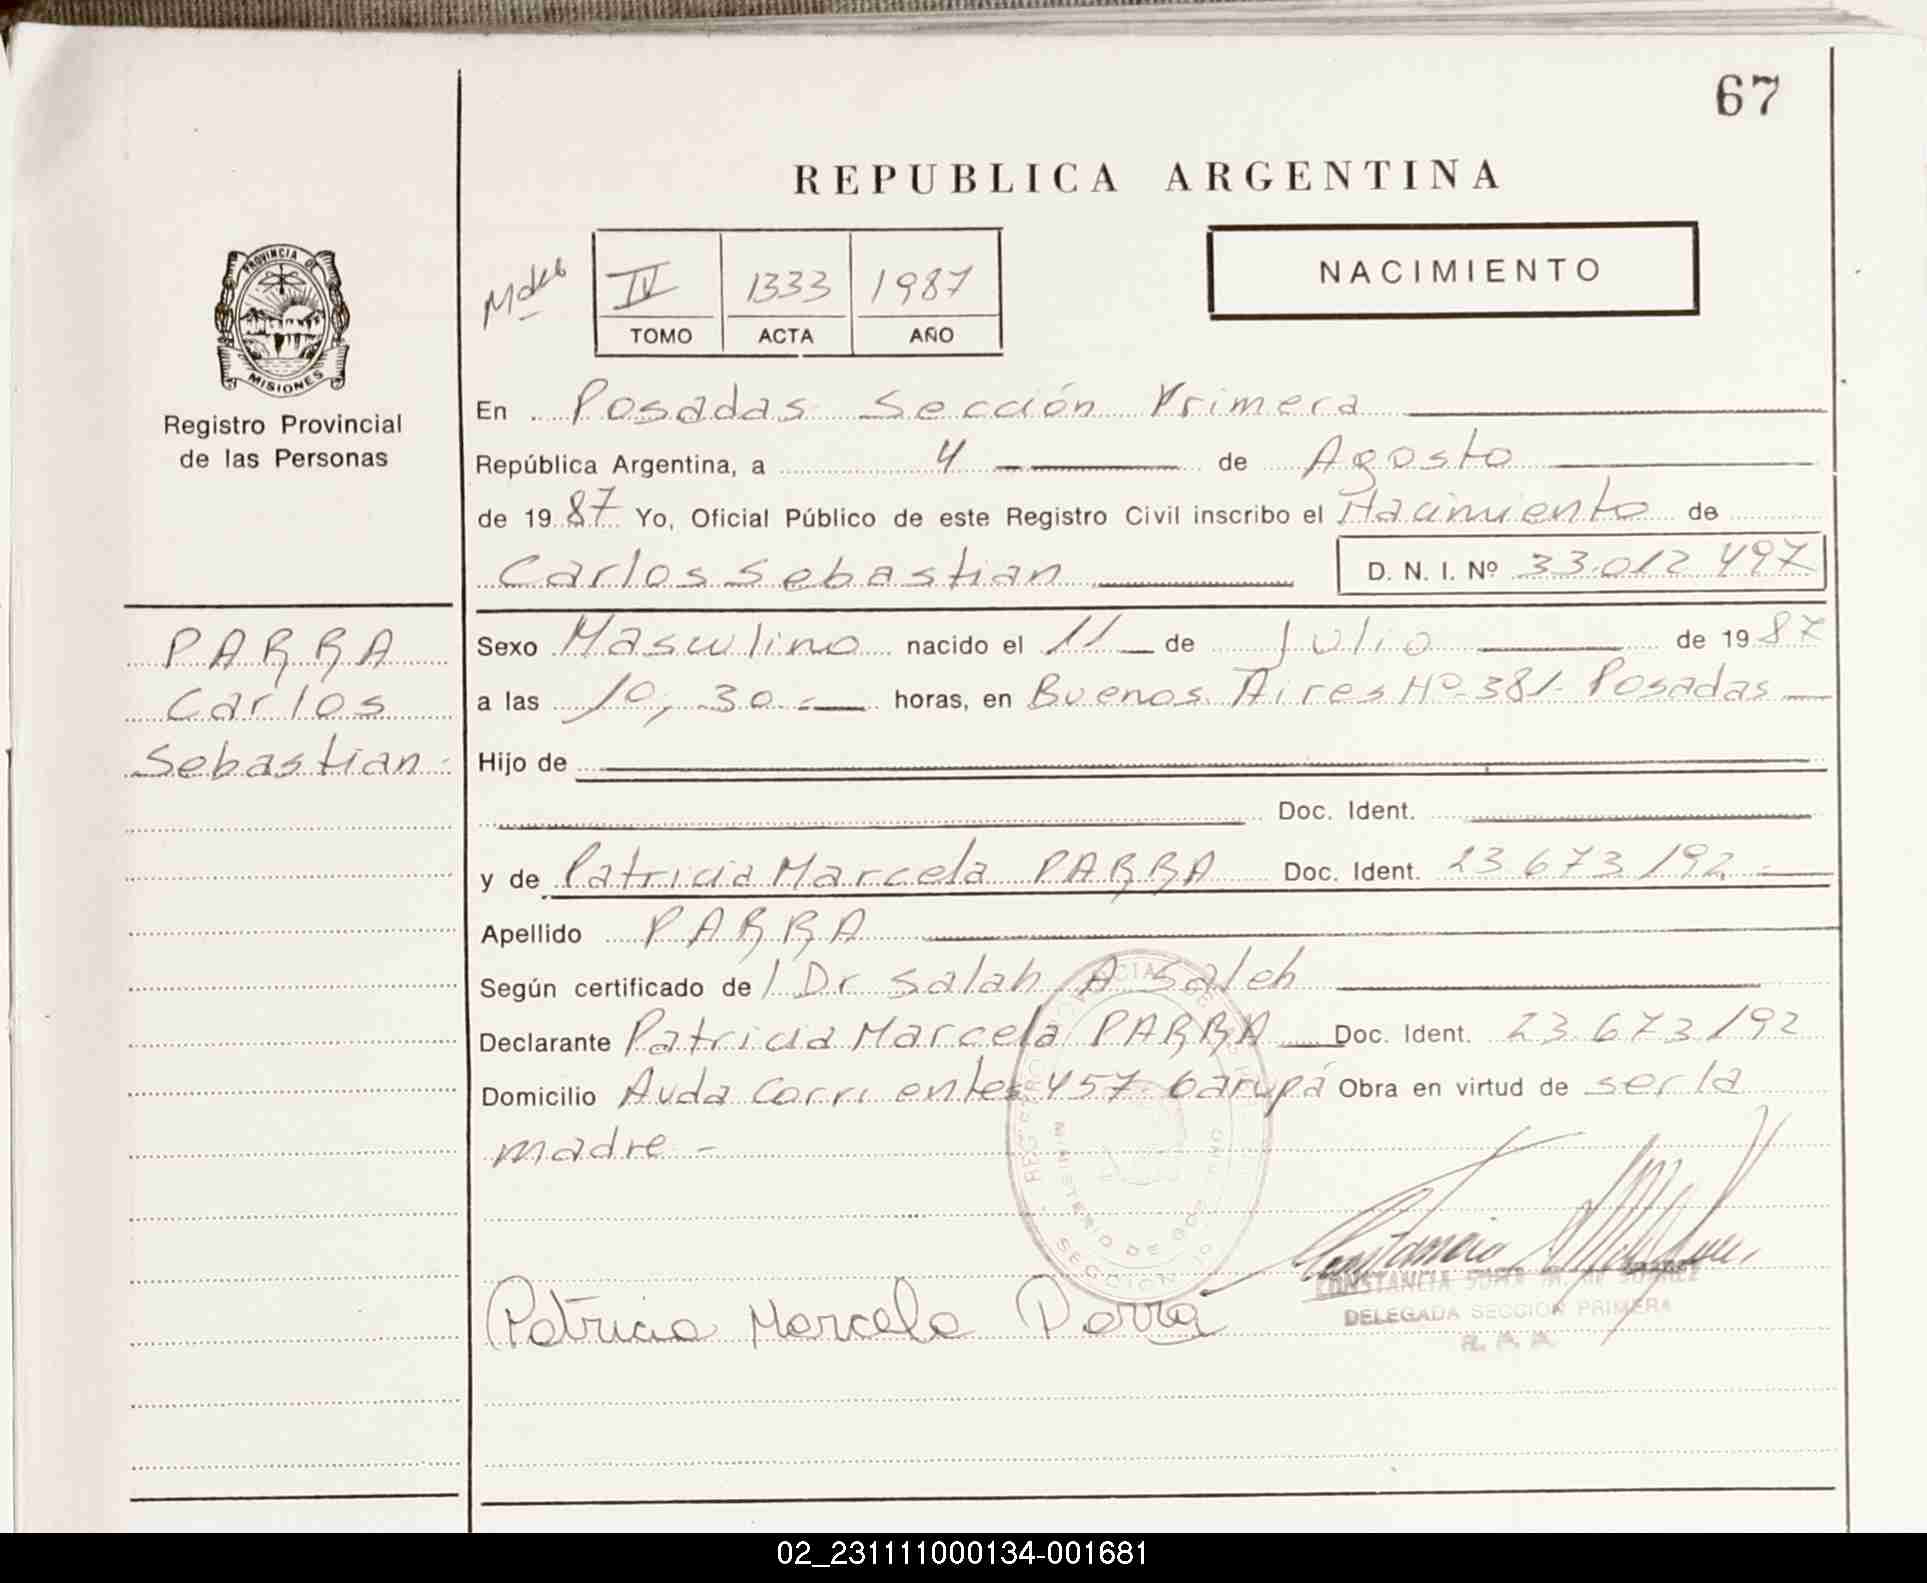 67
REPUBLICA ARGENTINA
PROVINCIA DE
MISIONES
Registro Provincial
de las Personas
IV 1333 1987
TOMO ACTA AÑO
NACIMIENTO
En Posadas Sección Primera
República Argentina, a 4 de Agosto
de 1987 Yo, Oficial Público de este Registro Civil inscribo el Nacimiento de
Carlos Sebastian D. N. I. Nº 33.012.497
PARRA
Carlos
Sebastian
Sexo Masculino nacido el 11 de Julio de 1987
a las 10,30 horas, en Buenos Aires Nº 381 Posadas
Hijo de
Doc. Ident.
y de Patricia Marcela PARRA Doc. Ident. 23.673.192
Apellido PARRA
Según certificado de l Dr Salah A Saleh
Declarante Patricia Marcela PARRA Doc. Ident. 23.673.192
Domicilio Avda Corrientes 457 Garupá Obra en virtud de ser la
madre -
MINISTERIO DE GOB
SECCION
Patricia Marcela Parra
CONSTANCIA
DELEGADA SECCION PRIMERA
02_231111000134-001681